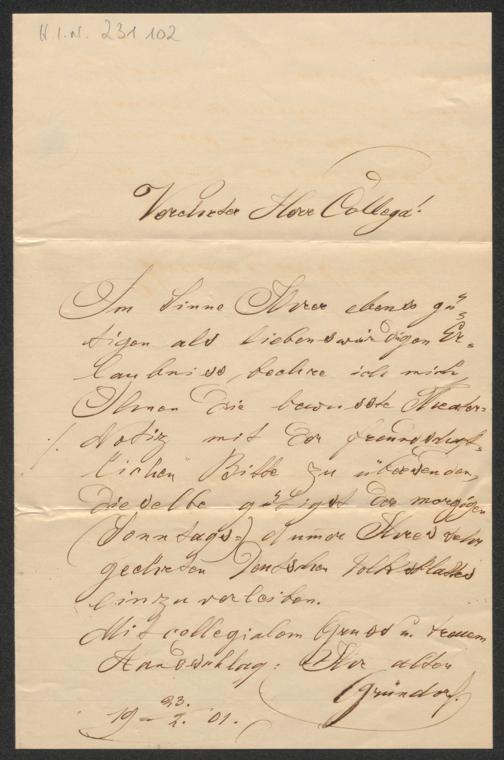 H.I.N. 231102
Verehrter Herr Collega!
Im Sinne Ihrer ebenso gü-
tigen als liebenswürdigen Er-
laubniss, beehre ich mich,
Ihnen die bewusste Theater-
./. Notiz mit der freundschaft-
lichen Bitte zu übersenden,
dieselbe gütigst der morgigen
(Sonntags-) Numer Ihres sehr
geehrten Deutschen Volksblattes
einzuverleiben.
Mit collegialem Gruss u. treuem
Handschlag: Ihr alter
Gründorf.
19 23./2. 01.